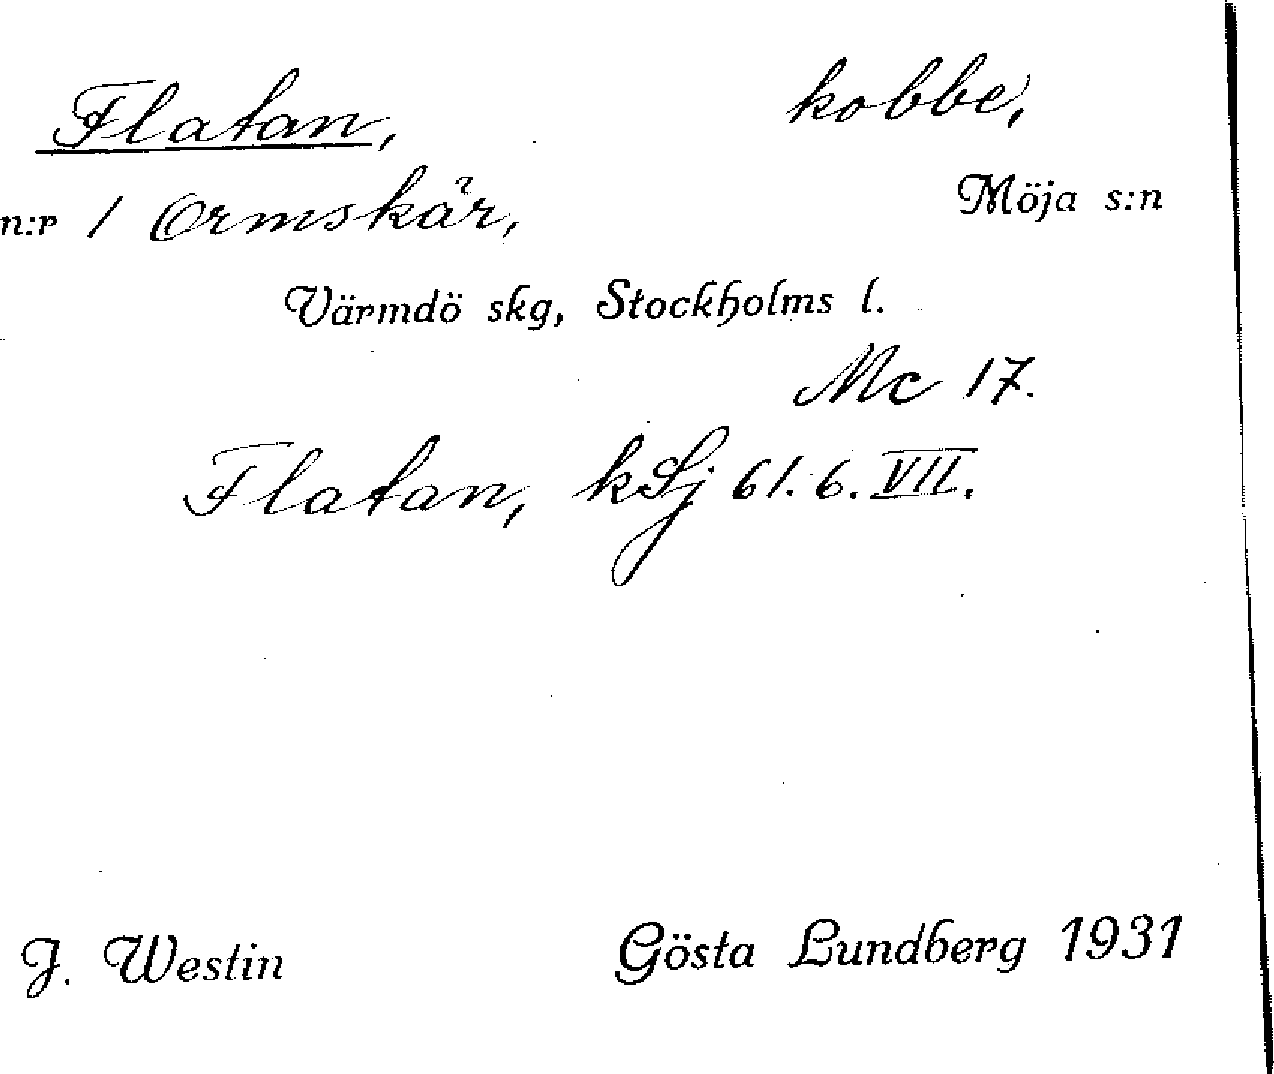 Flatan, kobbe,
n:r / Ormskär, Möja s:n
Värmdö skg, Stockholms l.
Mc 17.
Flatan, kSj 61. 6. VII.
J. Westin Gösta Lundberg 1931